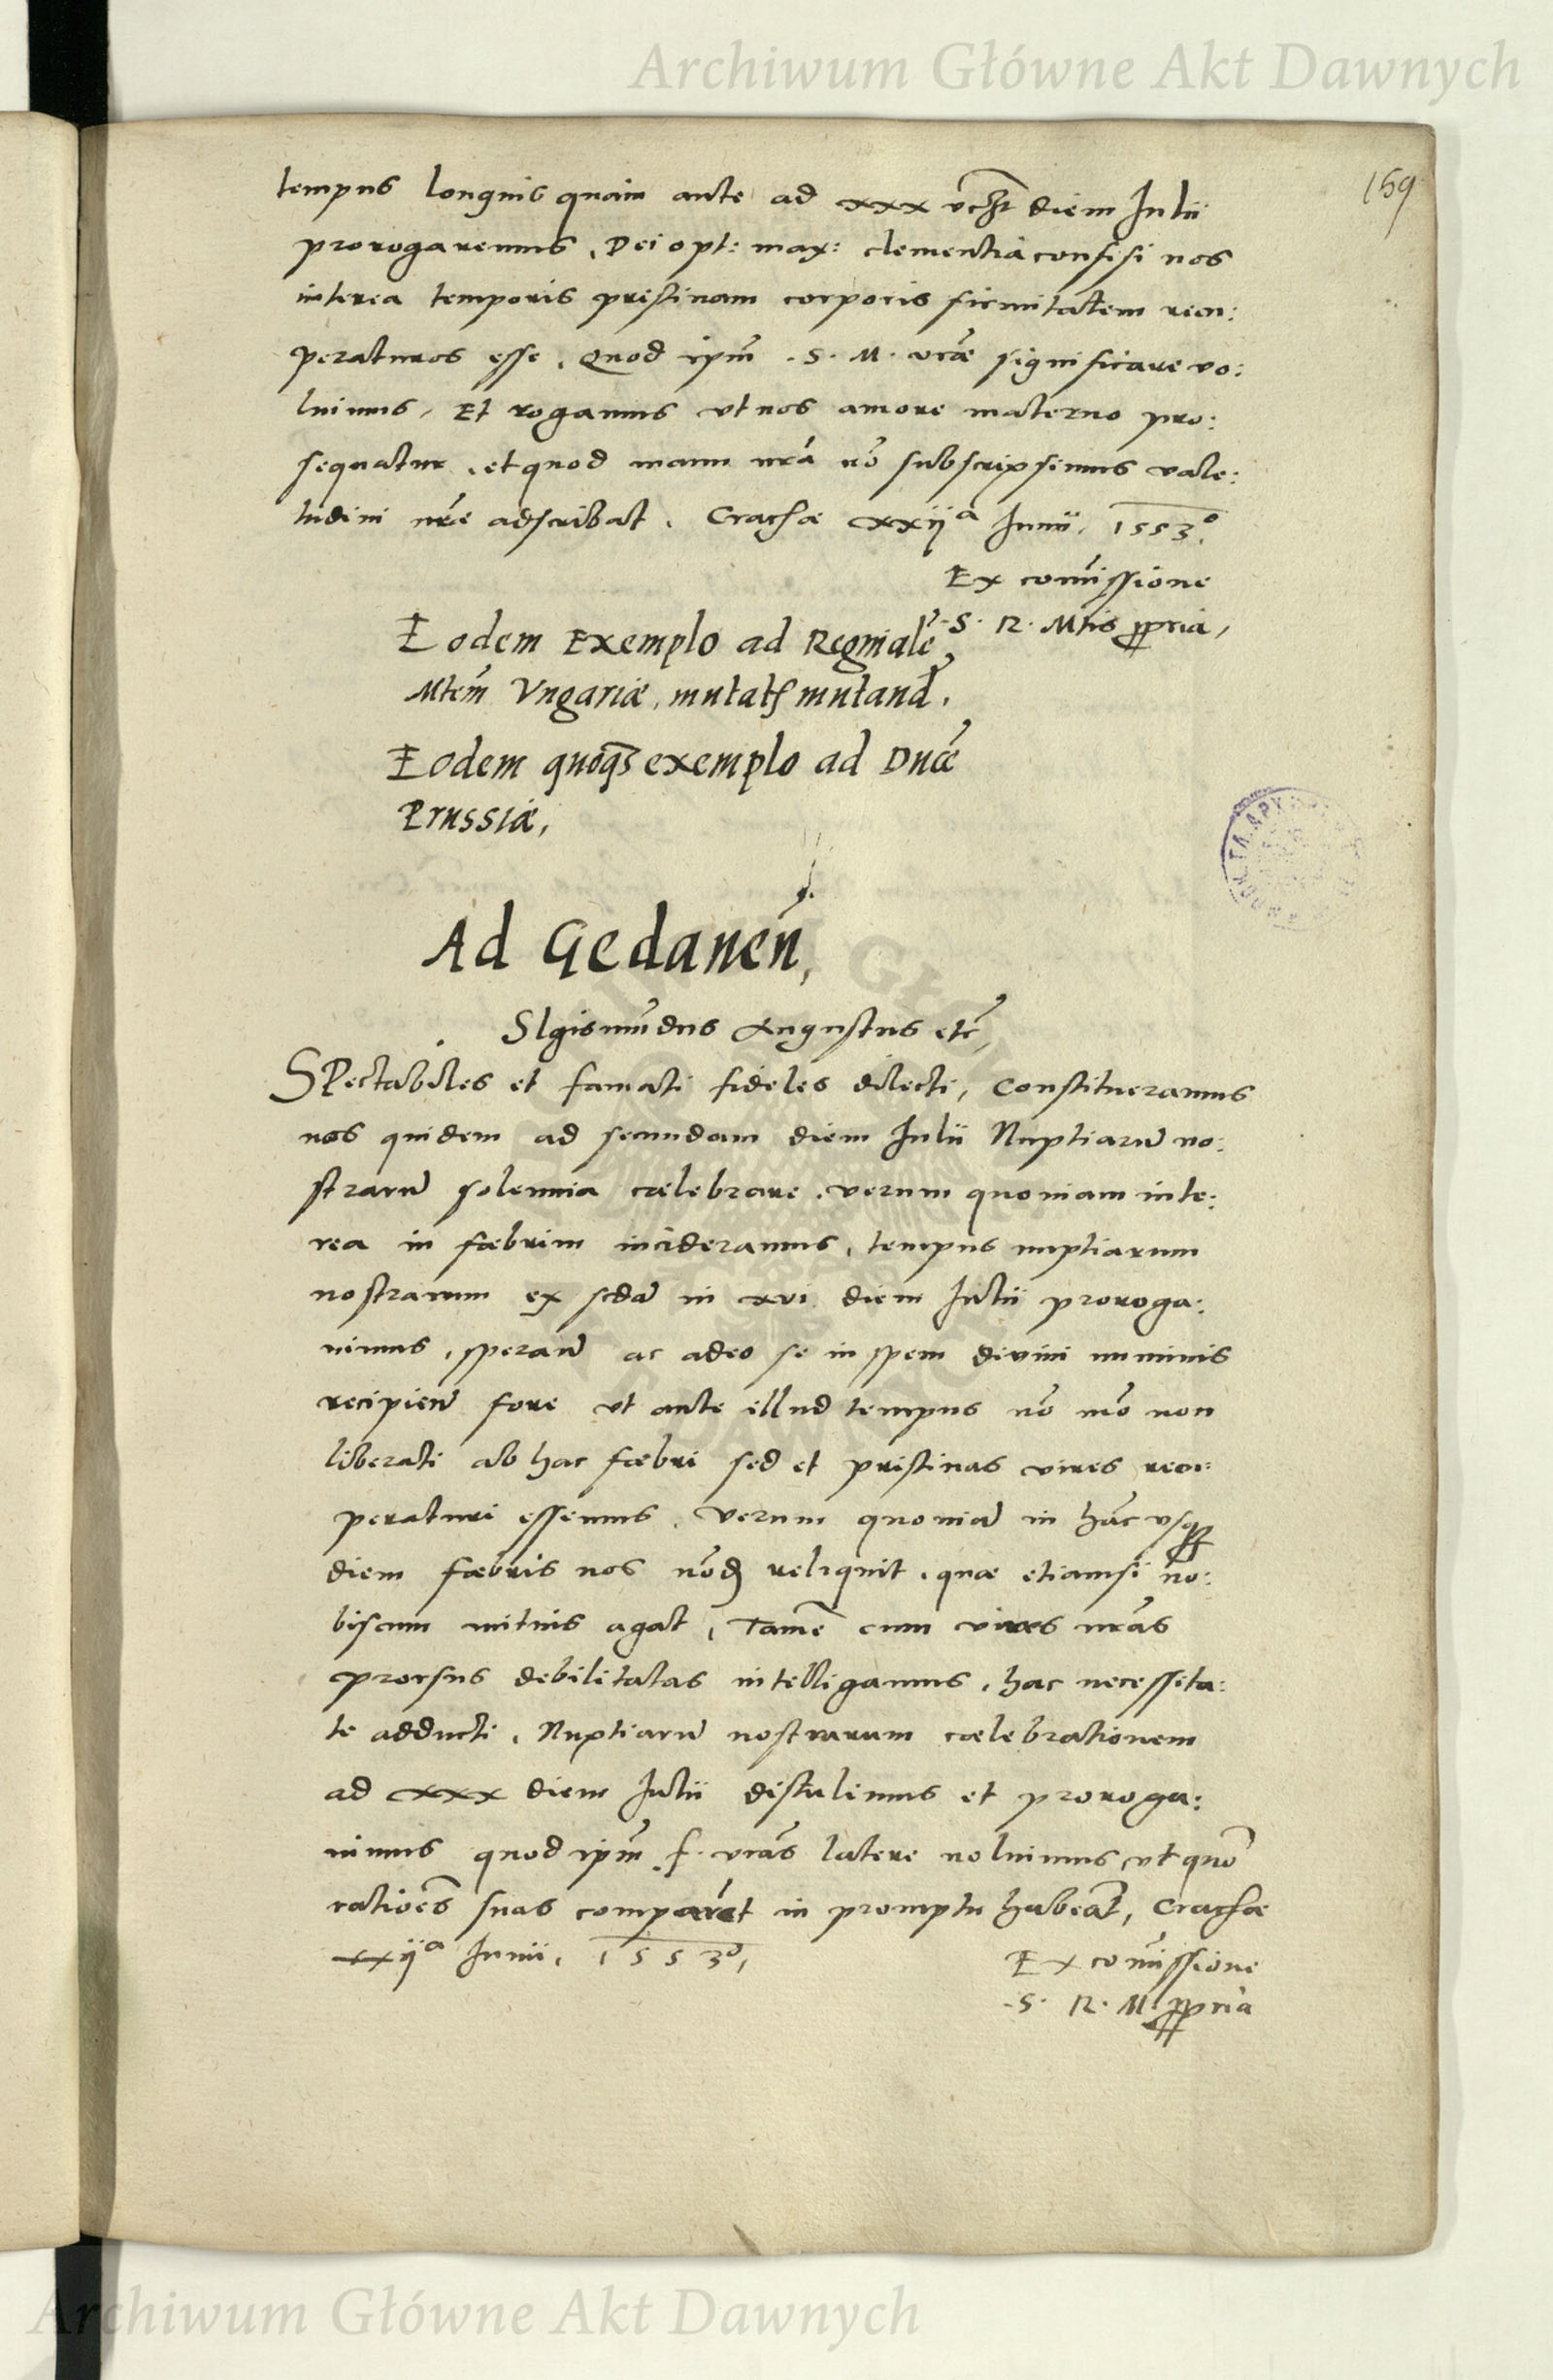 Archiwum Główne Akt Dawnych
159
tempus longius quam ante ad xxx diem Julii
prorogaremus, Dei opt: max: clementia confisi nos
interea temporis pristinam corporis firmitatem recu:
peraturos esse. Quod ipm̃ .S. M. vrãe significare vo:
luimus, Et rogamus ut nos amore materno pro:
sequatur, et quod manu nrã nõ subscripsimus vale:
tudini nrẽ adscribat. Crac̃hæ xxijª Junii. 1553º.
Ex com̃issione
S. R. Mtis ppria,
Eodem Exemplo ad Reginalẽ
Mtem̃ Vngariæ, mutatꝭ mutand̃.
Eodem quoqꝫ exemplo ad Ducẽ
Prussiæ,
Ad Gedaneñ,
SIgismũdus Augustus etc̃,
SPectabiles et famati fideles dilecti, Constitueramus
nos quidem ad secundam diem Julii Nuptiarũ no:
strarũ solennia cælebrare, verum quoniam inte:
rea in fæbrim incideramus, tempus nuptiarum
nostrarum ex scdã in xvi diem Julii proroga:
uimus, sperañ ac adeo se in spem divini numinis
recipieñ fore ut ante illud tempus nõ mõ non
liberati ab hac fæbri sed et pristinas vires recu:
peraturi essemus. Verum quoniã in hãc usqꝫ
diem fæbris nos nõd reliquit, quæ etiamsi no:
biscum mitius agat, Tamẽ cum vires nrãs
prorsus debilitatas intelligamus, hac necessita:
te adducti, Nuptiarũ nostrarum cælebrationem
ad xxx diem Julii distulimus et proroga:
uimus quod ipm̃ f. vrãs latere noluimus, ut quõ
ratiões suas comparẽt in promptu habeãt, Crac̃hæ
xxijª Junii, 1553º,
Ex com̃issione
S. R. M. ppria
Archiwum Główne Akt Dawnych